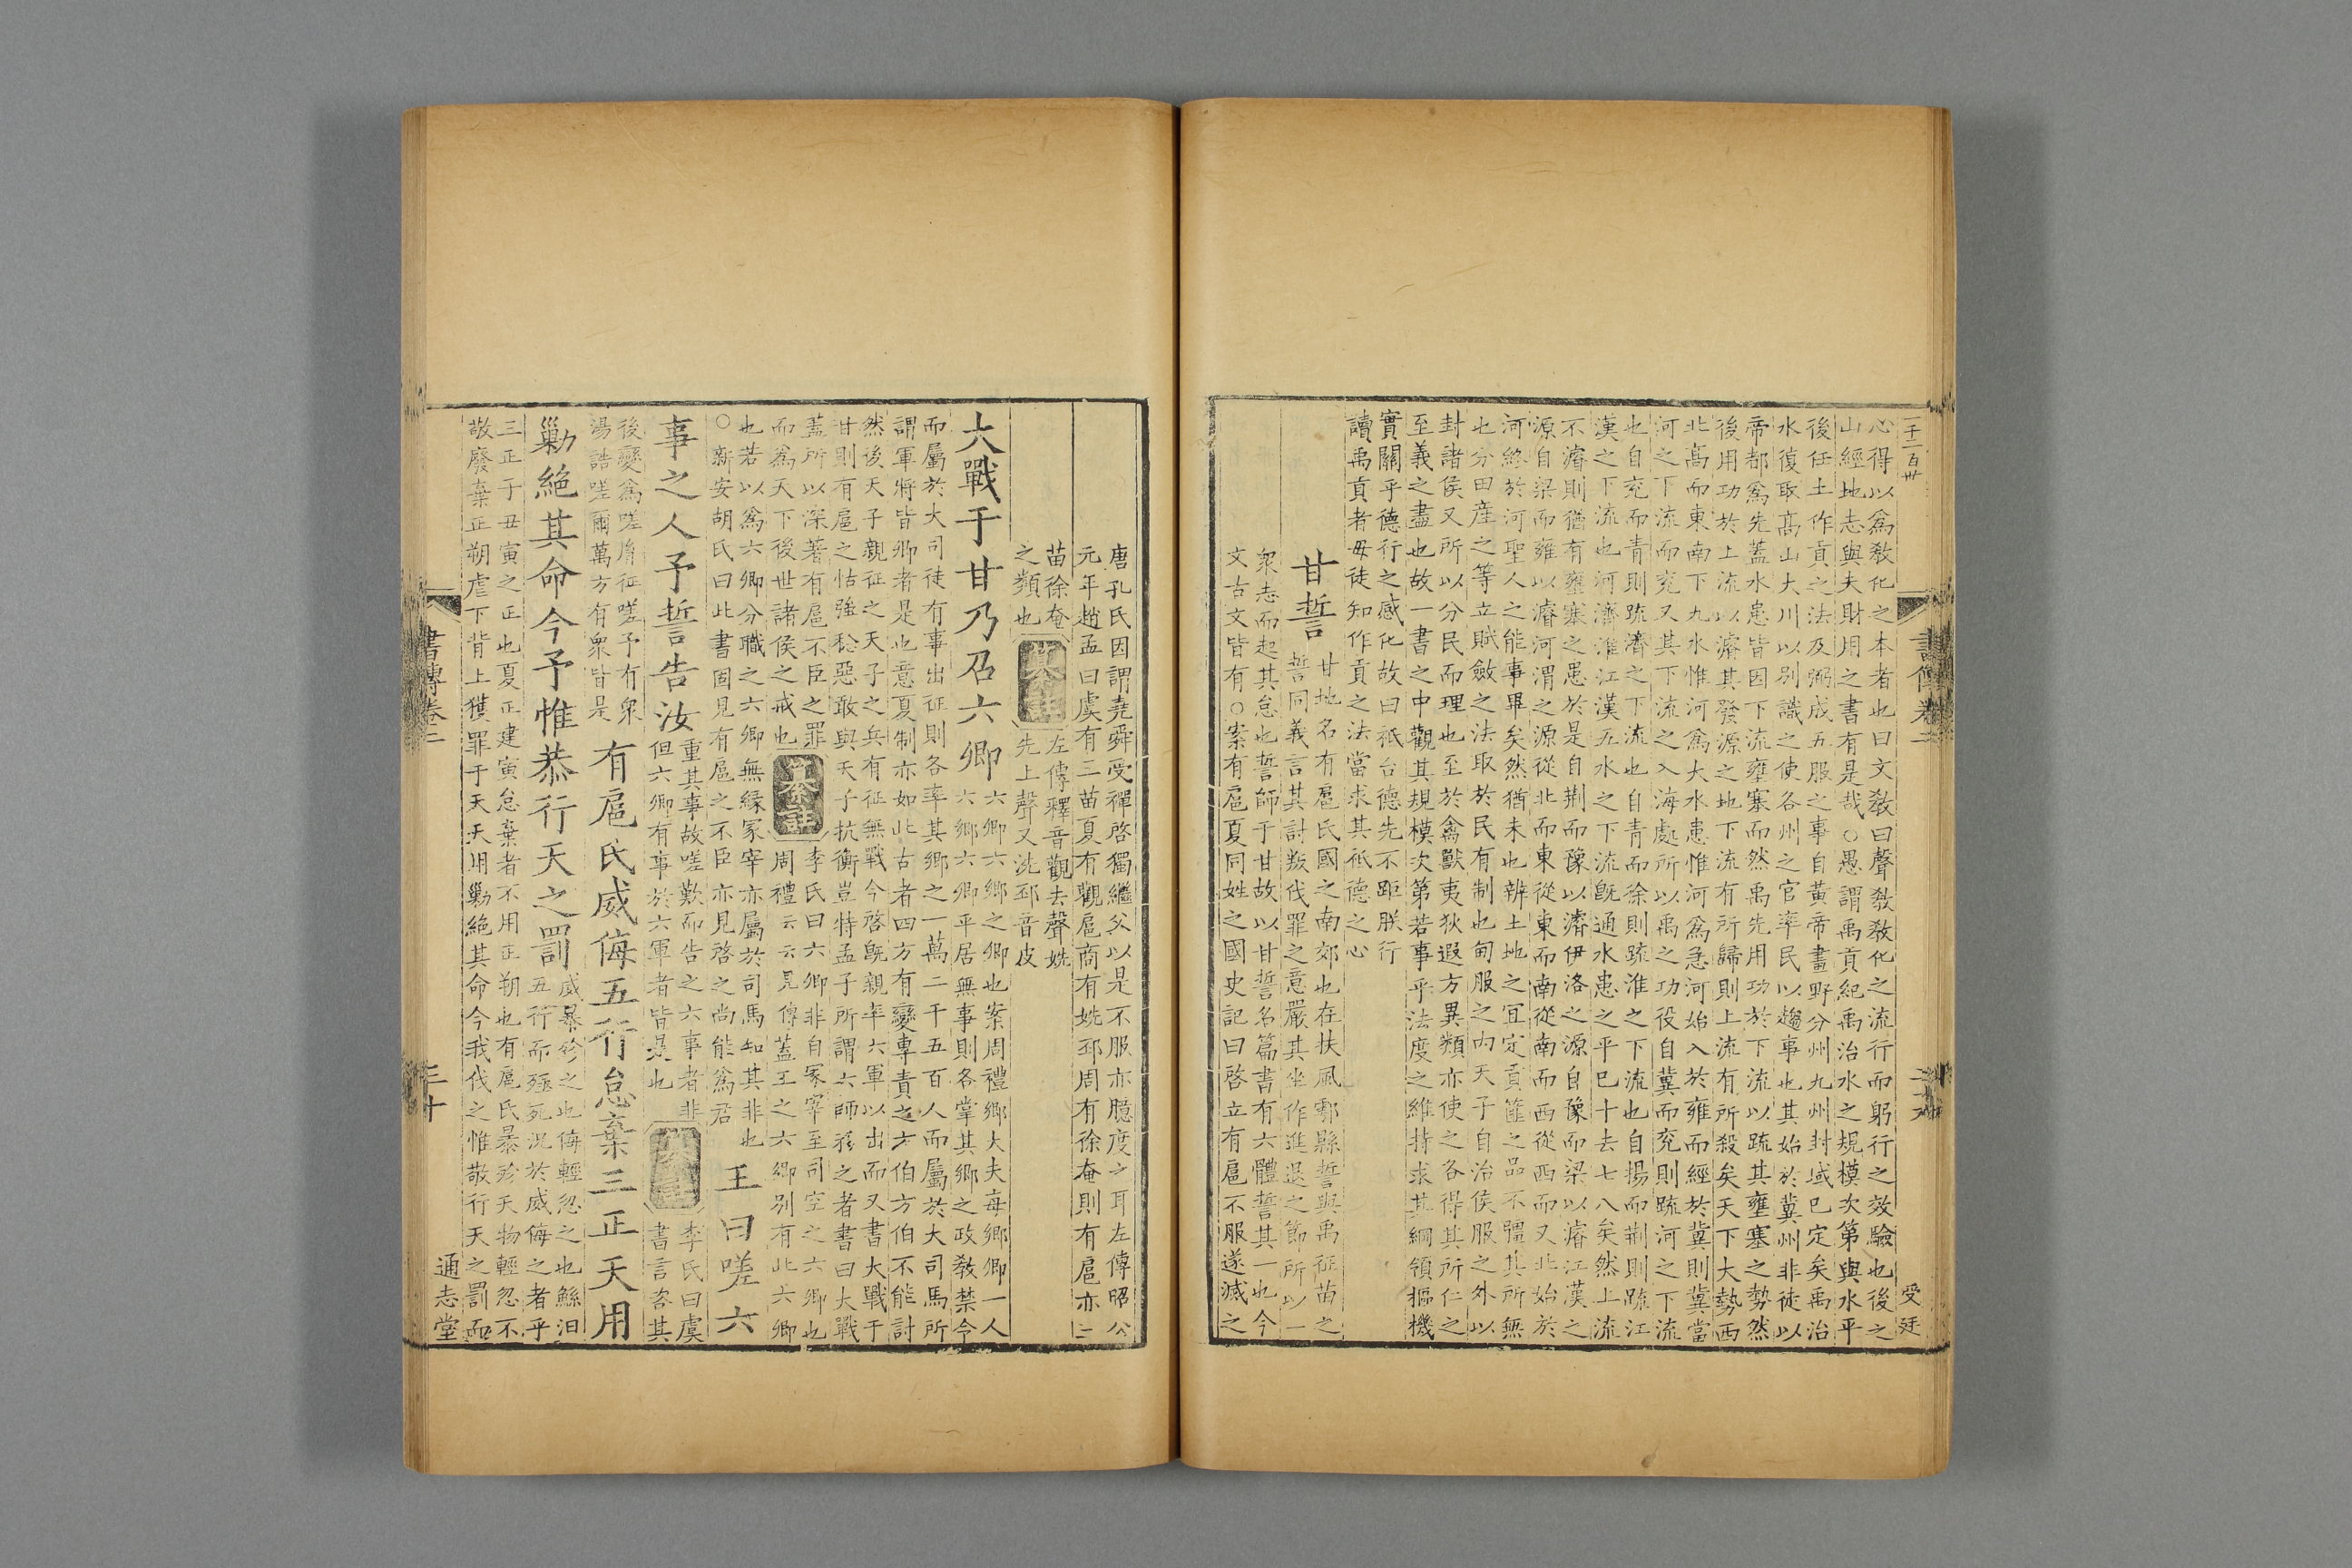 一千二百卅
書傳卷二
二十九
受廷
心得以爲敎化之本者也曰文敎曰聲敎敎化之流行而躬行之效驗也後之
山經地志與夫財用之書有是哉○愚謂禹貢紀禹治水之規模次第與水平
後任土作貢之法及弼成五服之事自黃帝畫野分州九州封域已定矣禹治
水復取高山大川以別識之使各州之官率民以趨事也其始於冀州非徒以
帝都爲先蓋水患皆因下流壅塞而然禹先用功於下流以疏其壅塞之勢然
後用功於上流以濬其發源之地下流有所歸則上流有所殺矣天下大勢西
北高而東南下九水惟河爲大水患惟河爲急河始入於雍而經於冀則冀當
河之下流而兖又其下流之入海處所以禹之功役自冀而兖則疏河之下流
也自兖而青則疏濟之下流也自青而徐則疏淮之下流也自揚而荆則疏江
漢之下流也河濟淮江漢五水之下流旣通水患之平已十去七八矣然上流
不濬則猶有壅塞之患於是自荆而豫以濬伊洛之源自豫而梁以濬江漢之
源自梁而雍以濬河渭之源從北而東從東而南從南而西從西而又北始於
河終於河聖人之能事畢矣然猶未也辨土地之宜定貢篚之品不彊其所無
也分田産之等立賦斂之法取於民有制也甸服之内天子自治侯服之外以
封諸侯又所以分民而理也至於禽獸夷狄遐方異類亦使之各得其所仁之
至義之盡也故一書之中觀其規模次第若事乎法度之維持求其綱領摳機
實關乎德行之感化故曰祇台德先不距朕行
讀禹貢者毋徒知作貢之法當求其祇德之心
甘誓
甘地名有扈氏國之南郊也在扶風鄠縣誓與禹征苗之
誓同義言其討叛伐罪之意嚴其坐作進退之節所以一
衆志而起其怠也誓師于甘故以甘誓名篇書有六體誓其一也今
文古文皆有○案有扈夏同姓之國史記曰啓立有扈不服遂滅之
唐孔氏因謂堯舜受禪啓獨繼父以是不服亦臆度之耳左傳昭公
元年趙孟曰虞有三苗夏有觀扈商有姺邳周有徐奄則有扈亦三
苗徐奄
之類也
纂註
左傳釋音觀去聲姺
先上聲又洗邳音皮
大戰于甘乃召六卿
六卿六鄉之卿也案周禮鄉大夫每鄉卿一人
六鄉六卿平居無事則各掌其鄉之政敎禁令
而屬於大司徒有事出征則各率其鄉之一萬二千五百人而屬於大司馬所
謂軍將皆卿者是也意夏制亦如此古者四方有變專責之方伯方伯不能討
然後天子親征之天子之兵有征無戰今啓旣親率六軍以出而又書大戰于
甘則有扈之怙強稔惡敢與天子抗衡豈特孟子所謂六師移之者書曰大戰
蓋所以深著有扈不臣之罪
而爲天下後世諸侯之戒也
纂註
李氏曰六卿非自冢宰至司空之六卿也
周禮云云見傳蓋王之六鄉別有此六卿
也若以爲六卿分職之六卿無緣冢宰亦屬於司馬知其非也
○新安胡氏曰此書固見有扈之不臣亦見啓之尚能爲君
王曰嗟六
事之人予誓告汝
重其事故嗟歎而告之六事者非
但六卿有事於六軍者皆是也
纂註
李氏曰虞
書言咨其
後變爲嗟胤征嗟予有衆
湯誥嗟爾萬方有衆皆是
有扈氏威侮五行怠棄三正天用
勦絕其命今予惟恭行天之罰
威暴殄之也侮輕忽之也鯀汩
五行而殛死況於威侮之者乎
三正子丑寅之正也夏正建寅怠棄者不用正朔也有扈氏暴殄天物輕忽不
敬廢棄正朔虐下背上獲罪于天天用勦絕其命今我伐之惟敬行天之罰而
書傳卷二
三十
通志堂